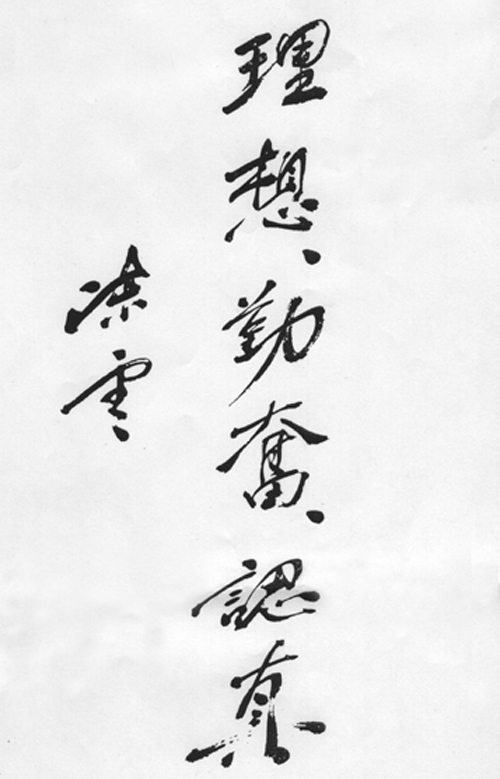 理想、勤奮、認真
凌雲